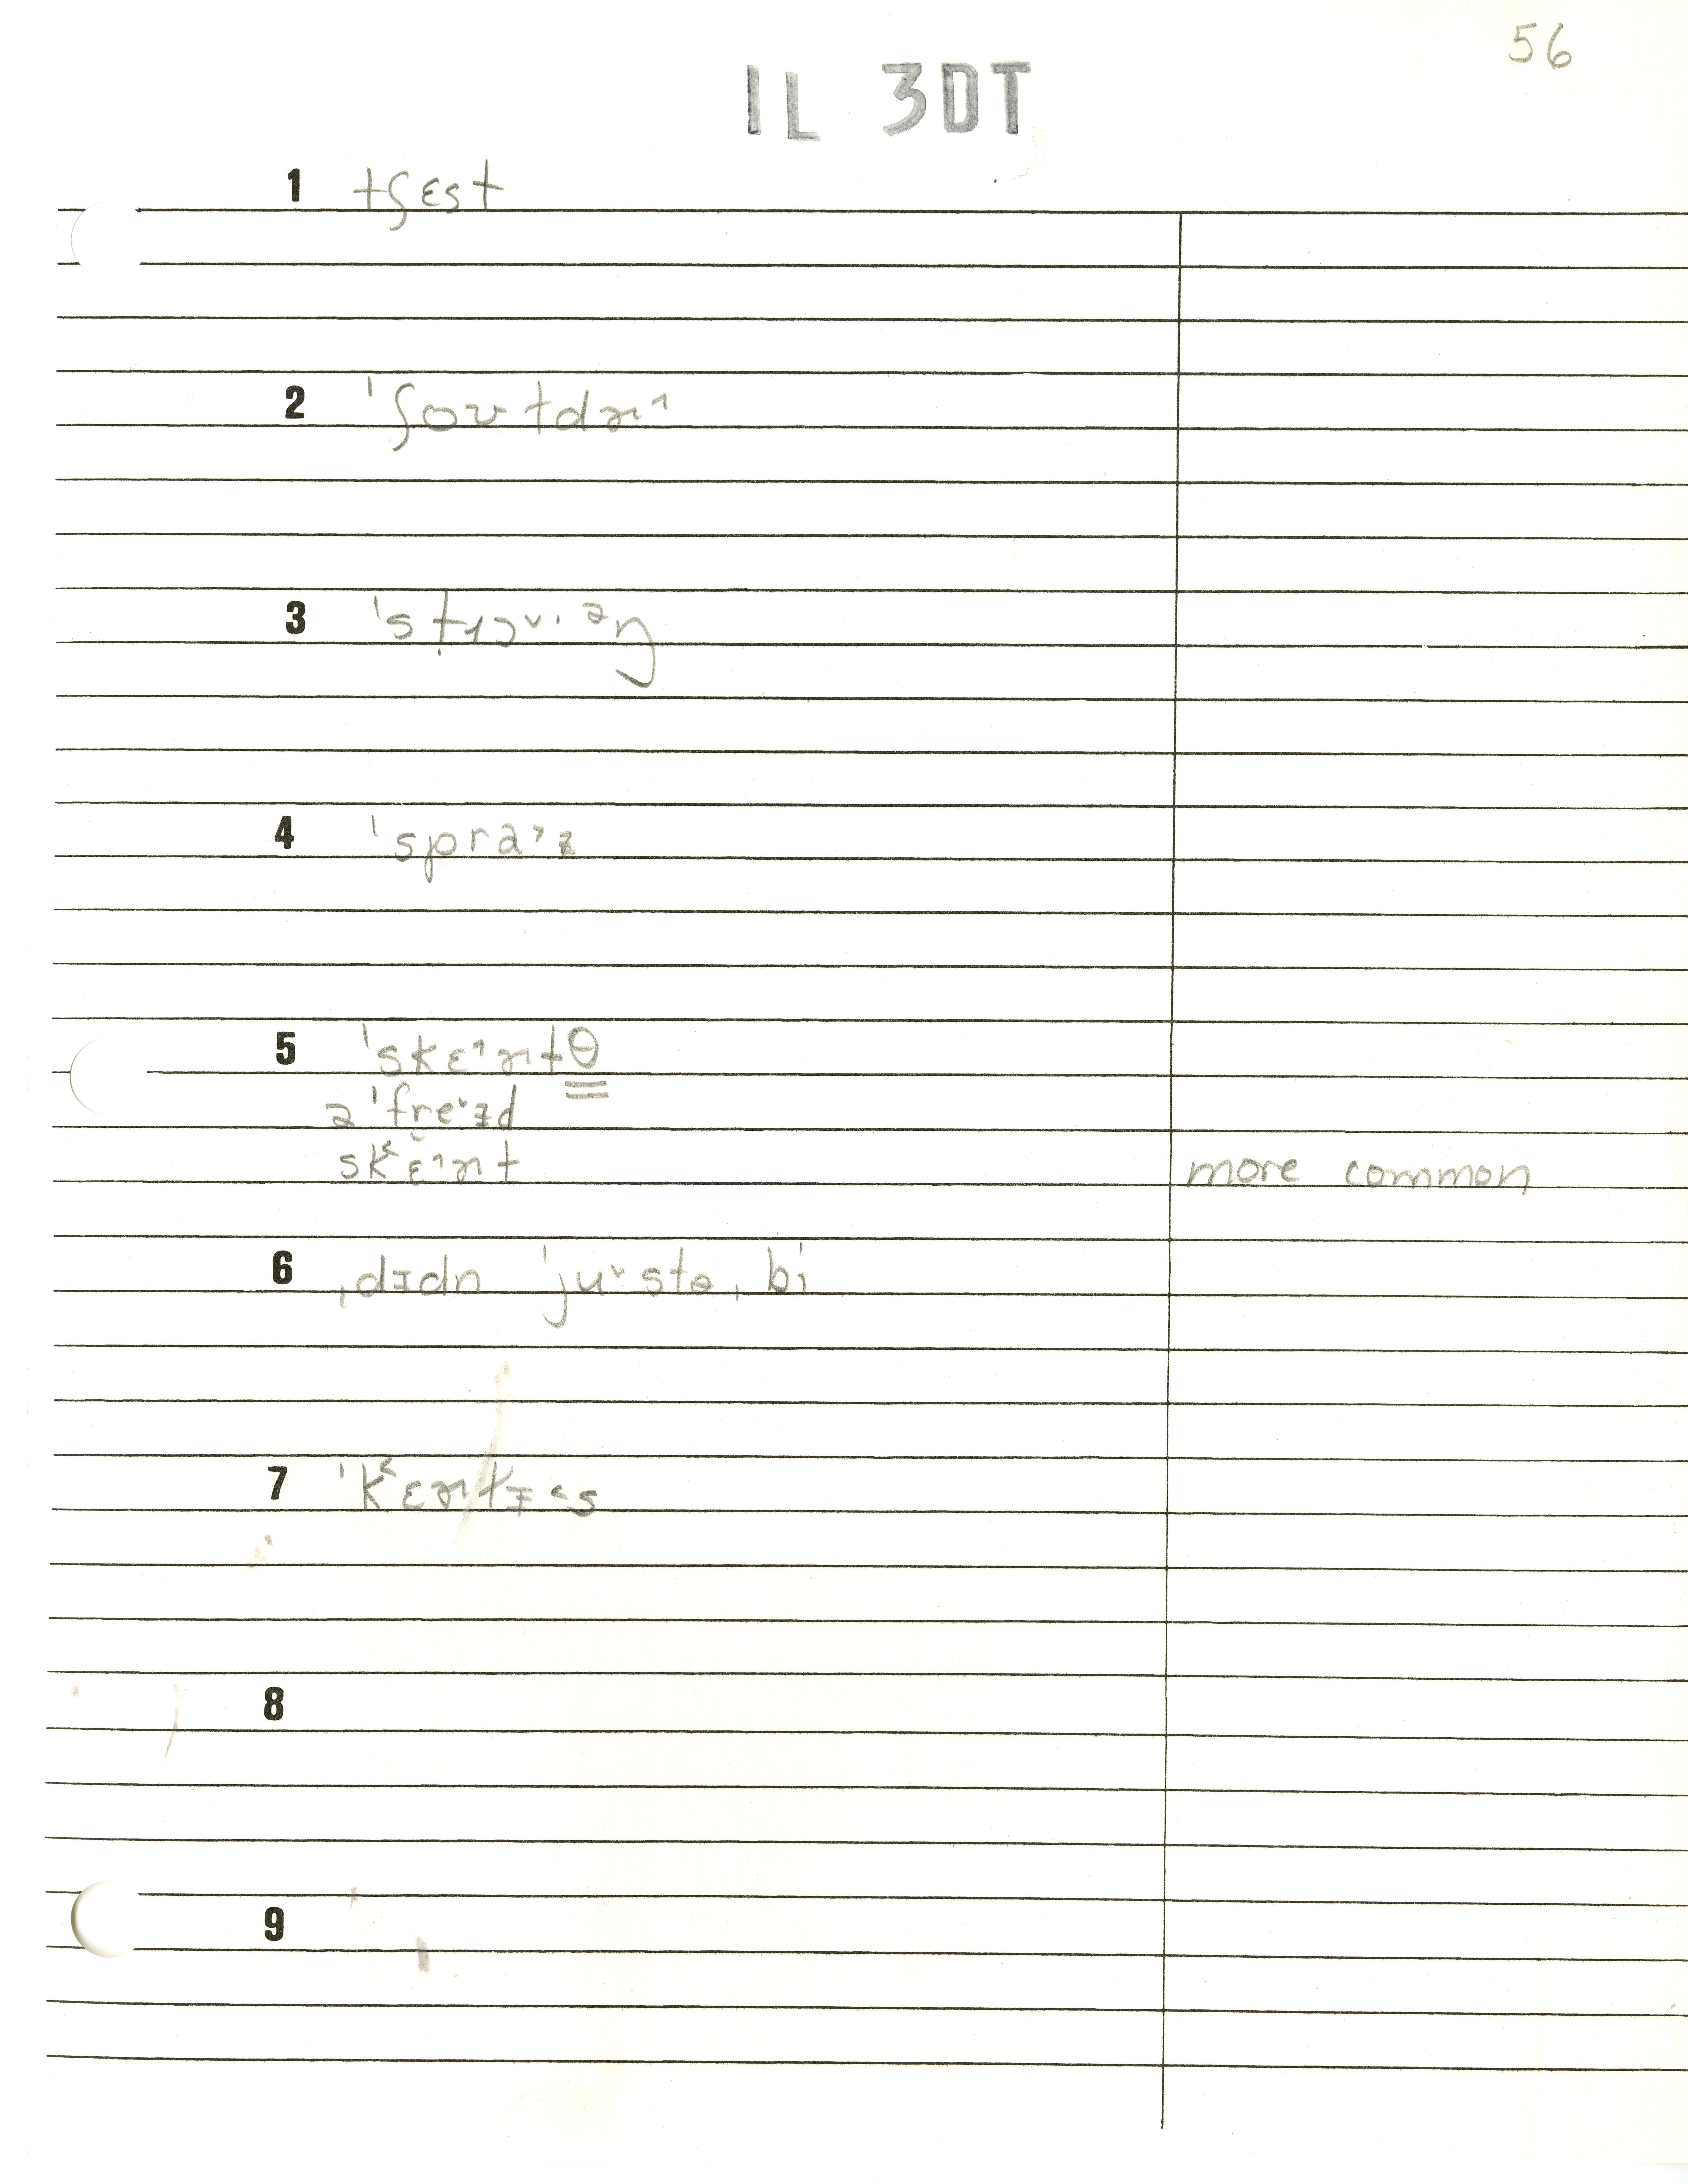 56
IL 3DT
1 tʃɛst
2 ˈʃoʊtdɚ˄
3 ˈstɹɔ˅ɪᵊŋ
4 ˈspra˃ᵻ
5 ˈskɛ˄ɚtθ
əˈfre˅ᵻd
sk˂ɛ˄ɚt more common
6 ˌdᵻdn ˈju˅stəˌbi
7 ˈk˂ɛɚlᵻ˂s
8
9